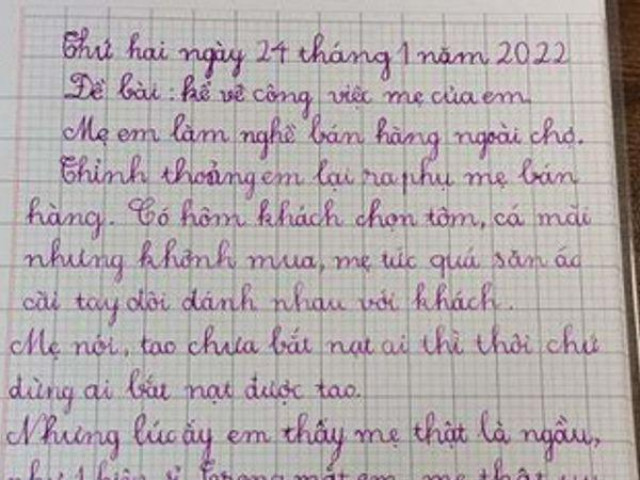 Thứ hai ngày 24 tháng 1 năm 2022
Đề bài: kể về công việc mẹ của em.
Mẹ em làm nghề bán hàng ngoài chợ.
Thỉnh thoảng em lại ra phụ mẹ bán
hàng. Có hôm khách chọn tôm, cá mãi
nhưng khônh mua, mẹ tức quá săn áo
cài tay đòi đánh nhau với khách.
Mẹ nói, tao chưa bắt nạt ai thì thôi chứ
đừng ai bắt nạt được tao.
Nhưng lúc ấy em thấy mẹ thật là ngầu,
như 1 hiệp sĩ. Trong mắt em, mẹ thật